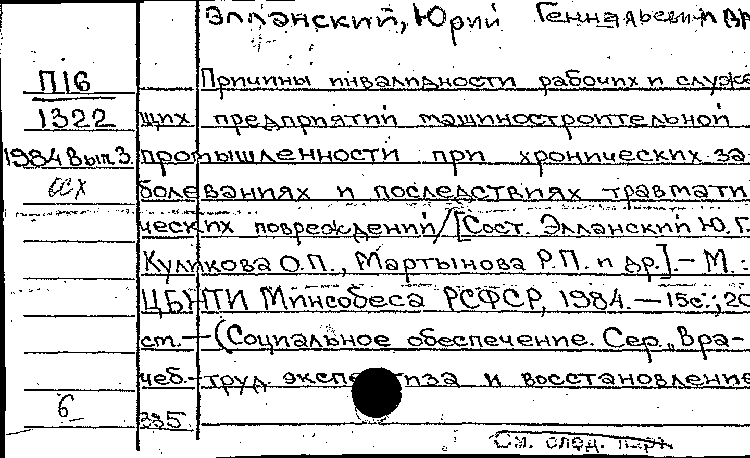 Эллэнский, Юрий Геннадьевич и др
П16
1322
1984 Вып 3.
осх
6
Причины инвалидности рабочих и служа
щих предприятий машиностроительной
промышленности при хронических за
болеваниях и последствиях травмати
ческих повреждений/[Сост. Эллэнский Ю.Г.
Куликова О.П., Мартынова Р.П. и др.].— М.:
ЦБНТИ Минсобеса РСФСР, 1984.—15с.; 20
ст.—(Социальное обеспечение. Сер., Вра-
чеб.-труд. экспертиза и восстановление
335
См. след. карт.